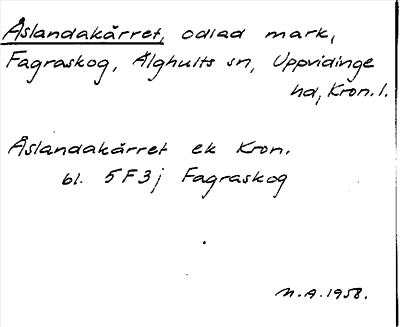 Åslandakärret, odlad mark,
Fagraskog, Älghults sn, Uppvidinge
hd, Kron. l.
Åslandakärret ek Kron.
bl. 5F3j Fagraskog
M.A. 1958.